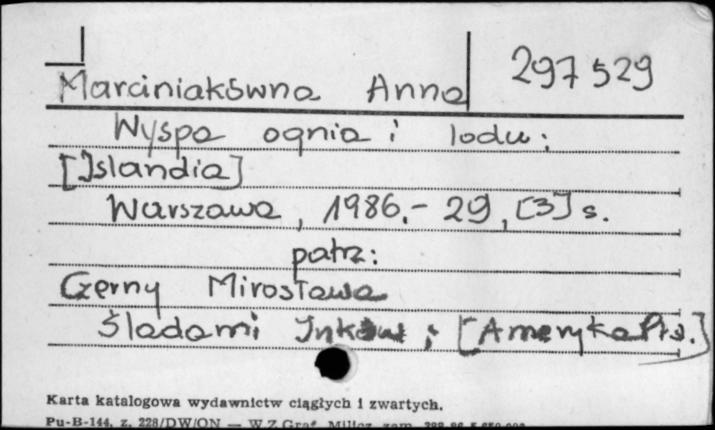 297529
Marciniakówna Anna
Wyspa ognia i lodu;
[Islandia]
Warszawa, 1986.- 29, [3] s.
patrz:
Czerny Mirosława
Śladami Inków; [Ameryka Płd.]
Karta katalogowa wydawnictw ciągłych i zwartych.
Pu-B-144, z. 228/DW/ON — W.Z.Graf. Milicz, zam.